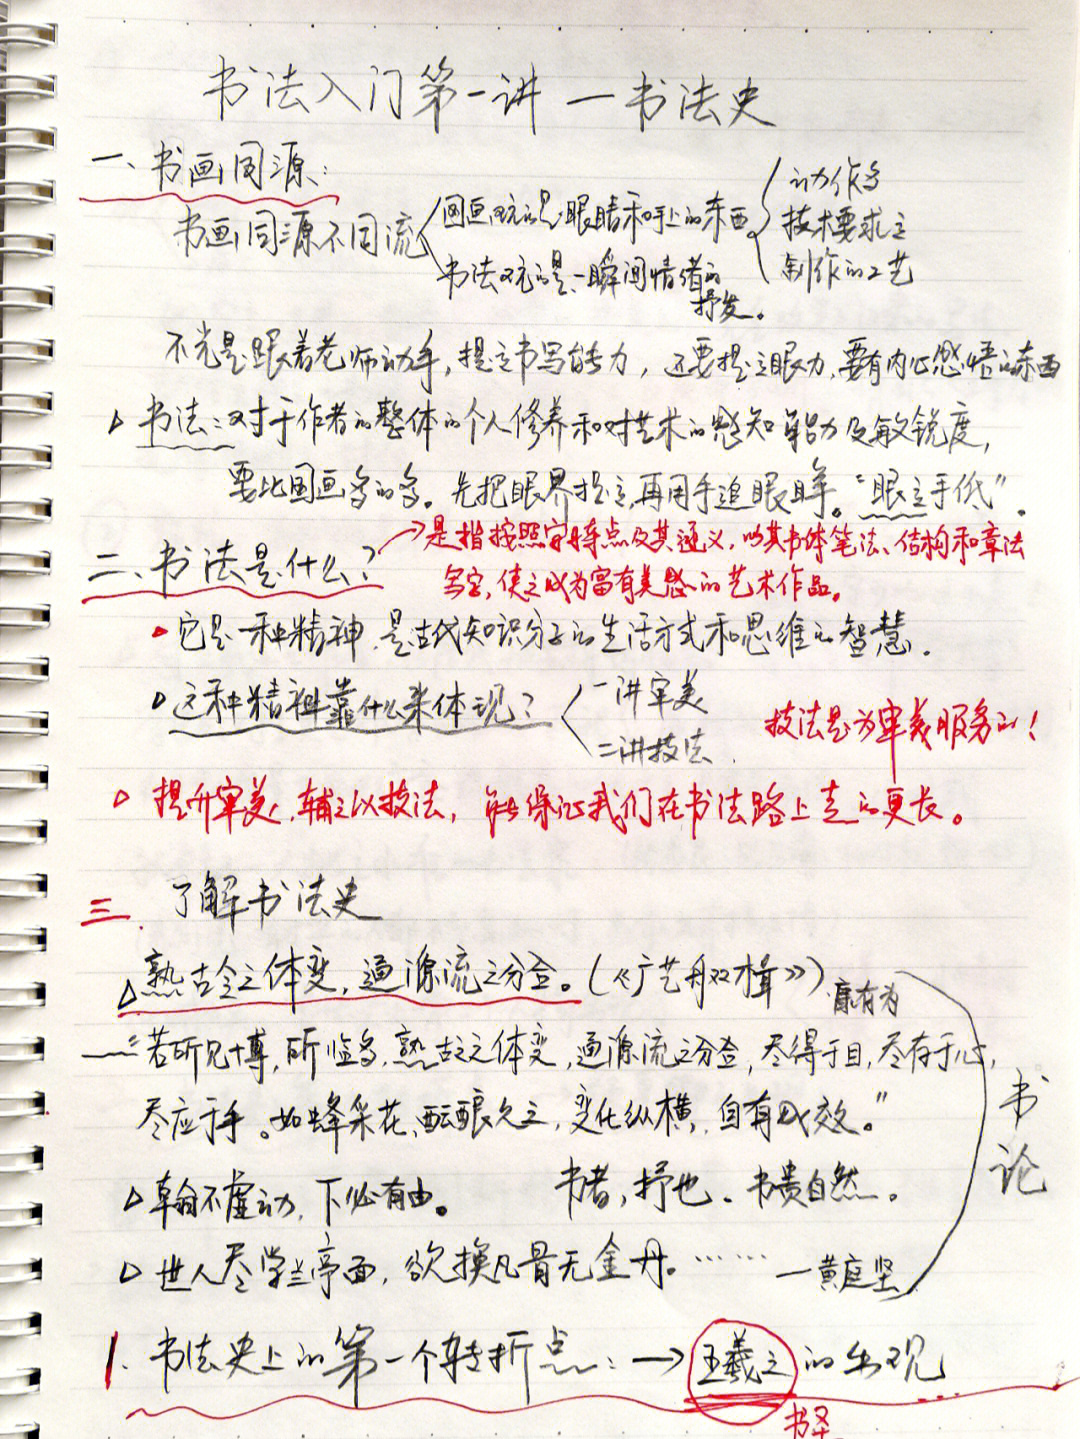 书法入门第一讲 — 书法史
一、书画同源:
书画同源不同流
国画玩的是眼睛和手上的东西
动作多
技术要求高
制作的工艺
书法玩的是一瞬间情绪的
抒发。
不光是跟着老师动手,提高书写能力,还要提高眼力,要有内心感悟的东西
书法:对于作者的整体的个人修养和对艺术的感知能力及敏锐度,
要比国画多的多。先把眼界提高,再用手追眼睛。“眼高手低”。
二、书法是什么?
→是指按照字特点及其涵义,以其书体笔法、结构和章法
写字,使之成为富有美感的艺术作品。
它是一种精神,是古代知识分子的生活方式和思维的智慧.
这种精神靠什么来体现?
一讲审美
二讲技法.
技法是为审美服务的!
提升审美,辅之以技法,能保证我们在书法路上走的更长。
三 了解书法史
熟古今之体变,通源流之分合。(《广艺舟双楫》)康有为
“若所见博,所临多,熟古今之体变,通源流之分合,尽得于目,尽存于心,
尽应于手。如蜂采花,酝酿久之,变化纵横,自有成效。”
翰不虚动,下必有由。 书者,抒也、书贵自然。
世人尽学兰亭面,欲换凡骨无金丹。…… —黄庭坚
书论
1. 书法史上的第一个转折点:→王羲之的出现
书圣